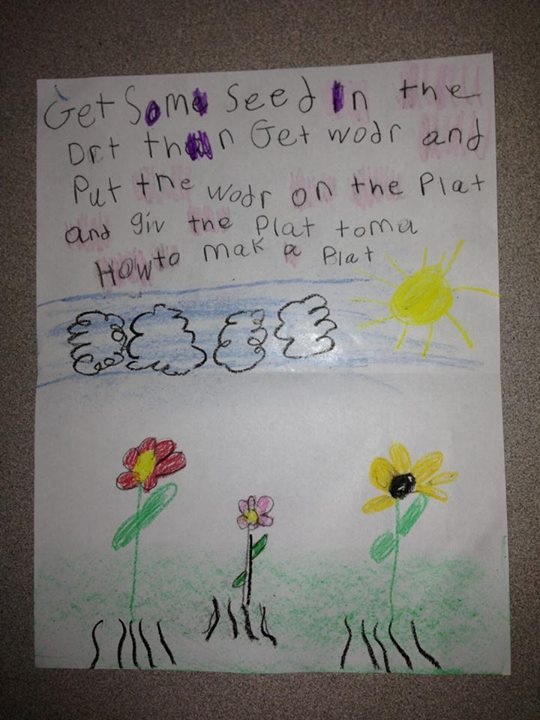 Get Some Seed In the
Drt than Get wodr and
Put the wodr on the Plat
and giv the Plat toma
HOW to mak a Plat